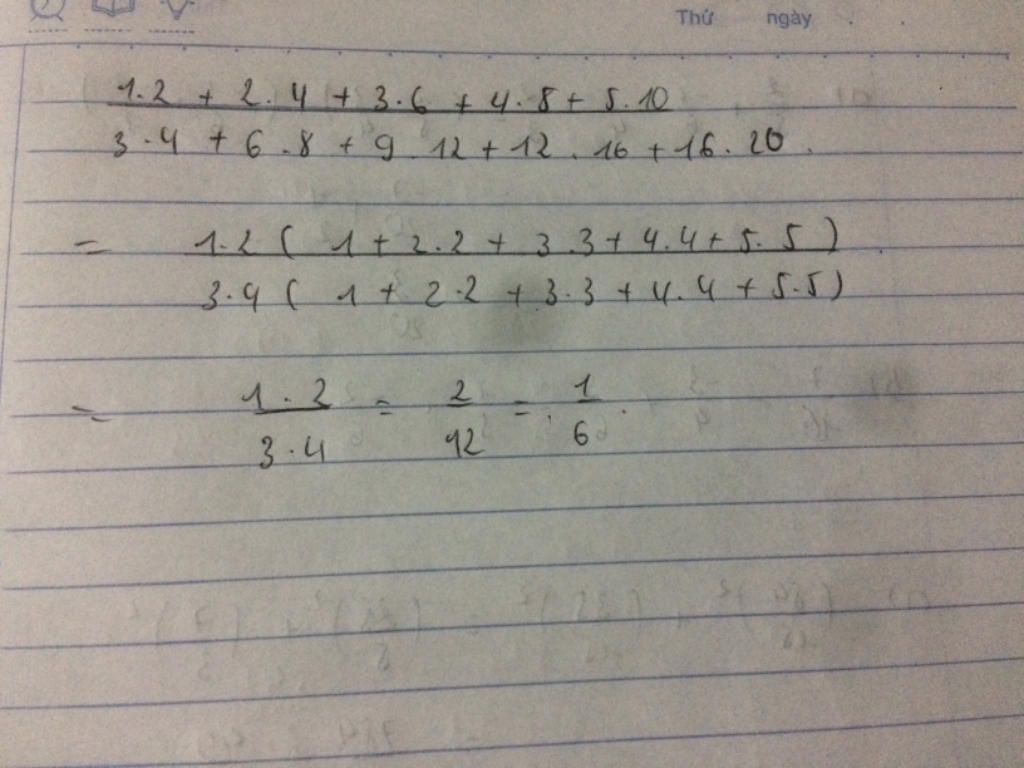 Thứ ngày . .
1.2 + 2.4 + 3.6 + 4.8 + 5.10
3.4 + 6.8 + 9.12 + 12.16 + 16.20.
= 1.2 ( 1 + 2.2 + 3.3 + 4.4 + 5.5 )
3.4 ( 1 + 2.2 + 3.3 + 4.4 + 5.5 )
= 1.2 = 2 = 1
3.4 12 6